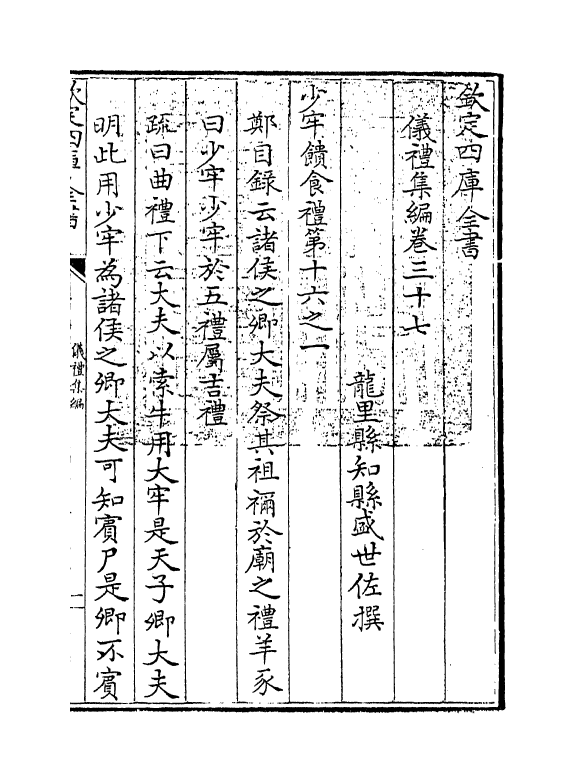 欽定四庫全書
儀禮集編卷三十七
龍里縣知縣盛世佐撰
少牢饋食禮第十六之一
鄭目錄云諸侯之卿大夫祭其祖禰於廟之禮羊豕
曰少牢少牢於五禮屬吉禮
疏曰曲禮下云大夫以索牛用大牢是天子卿大夫
明此用少牢為諸侯之卿大夫可知賓尸是卿不賓
欽定四庫全書
儀禮集編
一